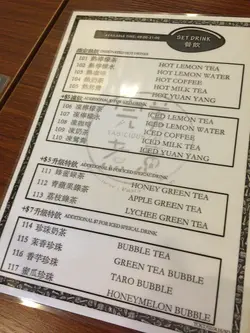 SET DRINK
餐飲
熱檸檬茶 HOT LEMON TEA
熱檸檬水 HOT LEMON WATER
熱咖啡 HOT COFFEE
熱奶茶 HOT MILK TEA
熱鴛鴦 HOT YUAN YANG
108 凍檸檬茶 ICED LEMON TEA
109 凍檸檬水 ICED LEMON WATER
凍咖啡 ICED COFFEE
凍奶茶 ICED MILK TEA
凍鴛鴦 ICED YUAN YANG
+$5升級特飲 ADDITIONAL $5 FOR ICED SPECIAL DRINK
111 蜂蜜綠茶 HONEY GREEN TEA
112 青蘋果綠茶 APPLE GREEN TEA
113 荔枝綠茶 LYCHEE GREEN TEA
+$7升級特飲 ADDITIONAL $7 FOR ICED SPECIAL DRINK
114 珍珠奶茶 BUBBLE TEA
115 茉香珍珠 GREEN TEA BUBBLE
116 香芋珍珠 TARO BUBBLE
117 蜜瓜珍珠 HONEYMELON BUBBLE